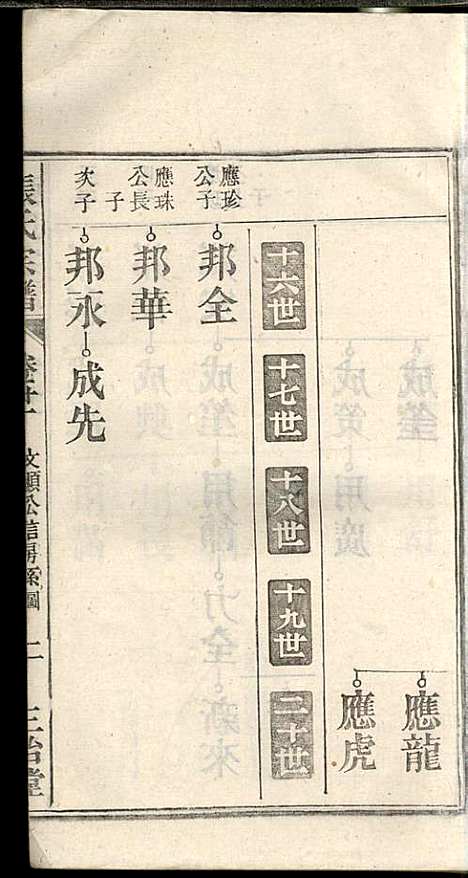 應龍
應虎
十六世
十七世
十八世
十九世
二十世
應珍公子
邦全
應珠公長子
邦華
次子
邦永
成先
氏宗譜
文顯公信房系圖